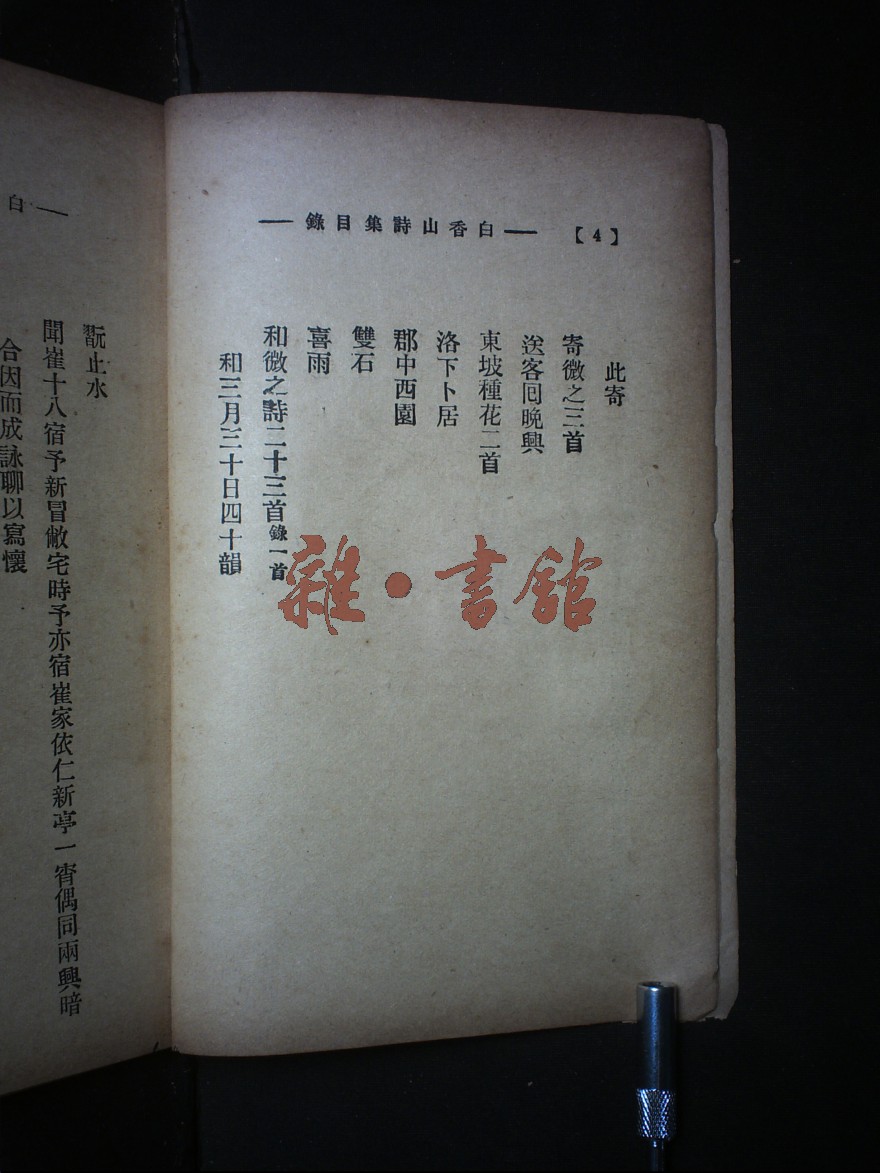 【4】
—白香山詩集目錄—
此寄
寄微之三首
送客囘晚興
東坡種花二首
洛下卜居
郡中西園
雙石
喜雨
和微之詩二十三首錄一首
和三月三十日四十韻
雜·書館
—白
翫止水
聞崔十八宿予新冒敝宅時予亦宿崔家依仁新亭一宵偶同兩興暗
合因而成詠聊以寫懷